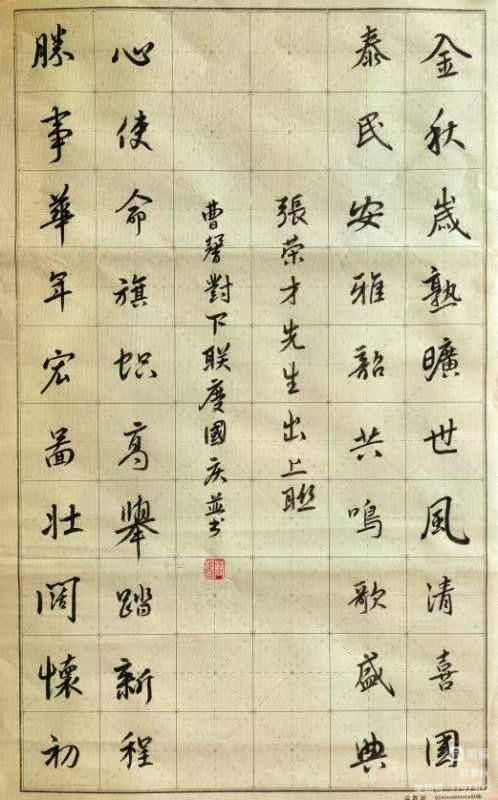 金秋歲熟曠世風清喜國
泰民安雅韶共鳴歌盛典
張荣才先生出上聯
曹馨對下联度國庆並书
勝事華年宏圖壯闊懷初
心使命旗幟高舉踏新程